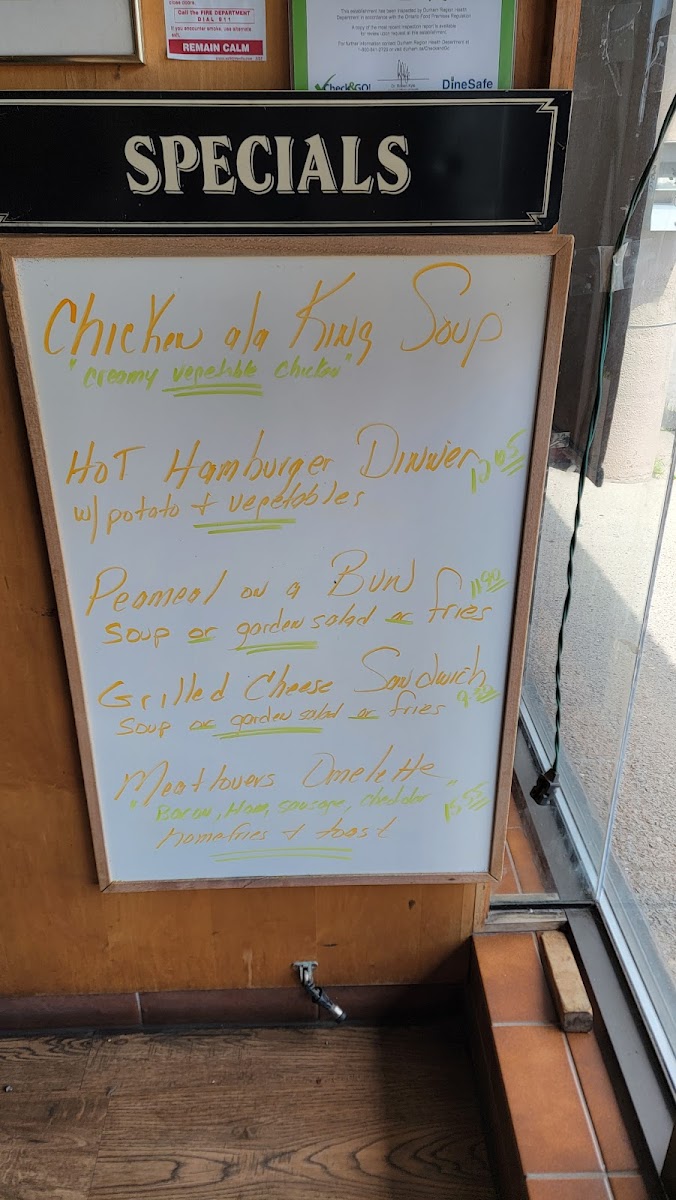 close doors.
Call the FIRE DEPARTMENT
DIAL 911
If you encounter smoke, use alternate
exit.
REMAIN CALM
This establishment has been inspected by Durham Region Health
Department in accordance with the Ontario Food Premises Regulation
A copy of the most recent inspection report is available
for review upon request at this establishment.
For further information contact Durham Region Health Department at
1-800-841-2729 or visit durham.ca/CheckandGo
Check&GO!
DineSafe
SPECIALS
Chicken ala King Soup
"creamy vegetable chicken"
HOT Hamburger Dinner
w/ potato + vegetables
Peameal on a Bun 11.90
Soup or garden salad or fries
Grilled Cheese Sandwich
Soup or garden salad or fries
Meatlovers Omelette
"Bacon, Ham, sausage, cheddar"
homefries + toast